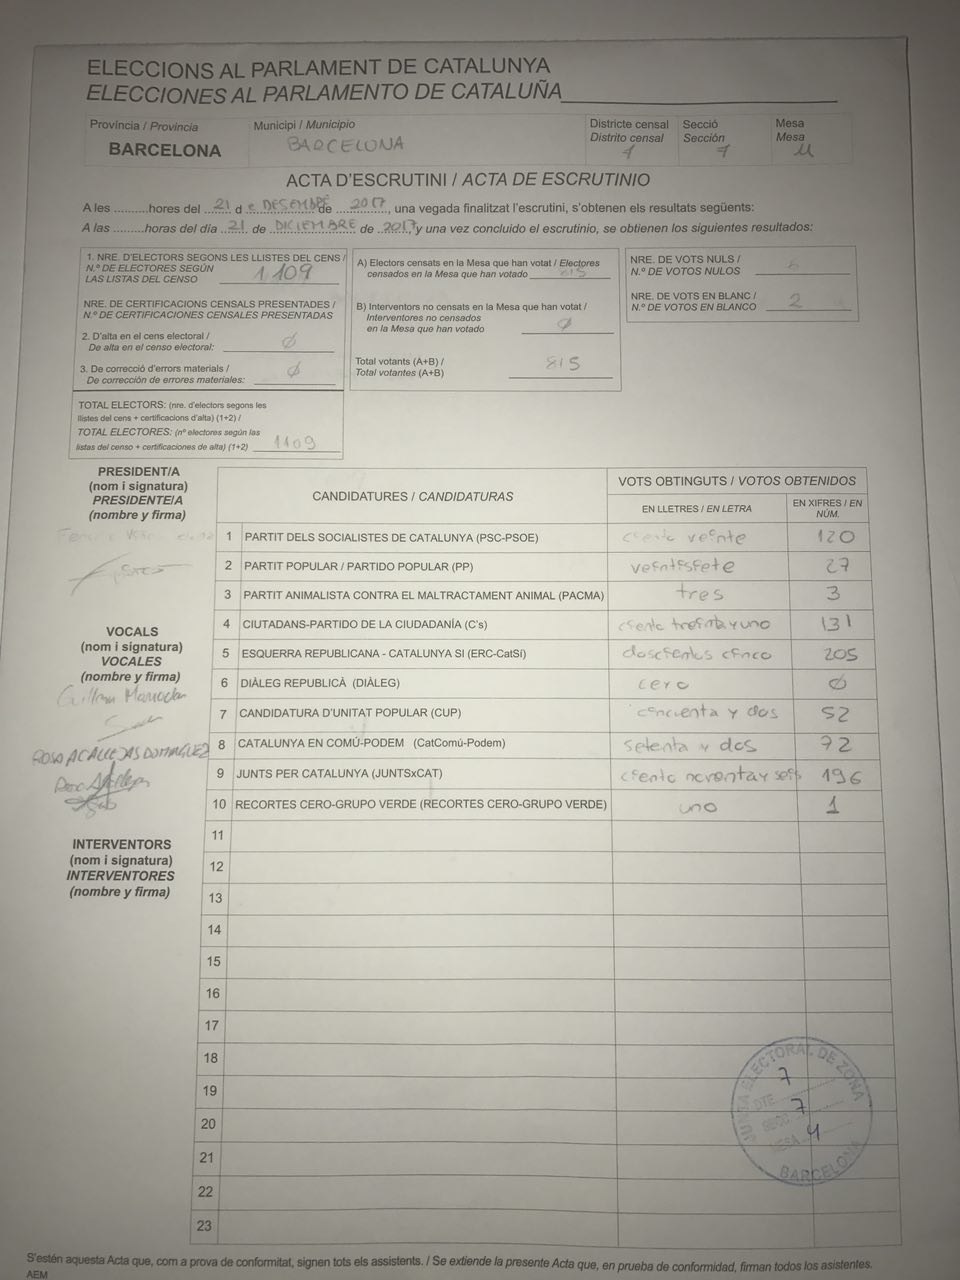 ELECCIONS AL PARLAMENT DE CATALUNYA
ELECCIONES AL PARLAMENTO DE CATALUÑA
Província / Provincia
BARCELONA
Municipi / Municipio
BARCELONA
Districte censal
Distrito censal
7
Secció
Sección
7
Mesa
Mesa
U
ACTA D'ESCRUTINI / ACTA DE ESCRUTINIO
A les ..........hores del 21 de DESEMBRE de 2017, una vegada finalitzat l'escrutini, s'obtenen els resultats següents:
A las .........horas del día 21 de DICIEMBRE de 2017, y una vez concluido el escrutinio, se obtienen los siguientes resultados:
1. NRE. D'ELECTORS SEGONS LES LLISTES DEL CENS /
N.º DE ELECTORES SEGÚN
LAS LISTAS DEL CENSO 1.109
NRE. DE CERTIFICACIONS CENSALS PRESENTADES /
N.º DE CERTIFICACIONES CENSALES PRESENTADAS
2. D'alta en el cens electoral /
De alta en el censo electoral: Ø
3. De correcció d'errors materials /
De corrección de errores materiales: Ø
TOTAL ELECTORS: (nre. d'electors segons les
llistes del cens + certificacions d'alta) (1+2) /
TOTAL ELECTORES: (nº electores según las
listas del censo + certificaciones de alta) (1+2) 1109
A) Electors censats en la Mesa que han votat / Electores
censados en la Mesa que han votado 815
B) Interventors no censats en la Mesa que han votat /
Interventores no censados
en la Mesa que han votado Ø
Total votants (A+B) /
Total votantes (A+B) 815
NRE. DE VOTS NULS /
N.º DE VOTOS NULOS
NRE. DE VOTS EN BLANC /
N.º DE VOTOS EN BLANCO 2
PRESIDENT/A
(nom i signatura)
PRESIDENTE/A
(nombre y firma)
VOCALS
(nom i signatura)
VOCALES
(nombre y firma)
ROSA ACALLEJAS DOMINGUEZ
INTERVENTORS
(nom i signatura)
INTERVENTORES
(nombre y firma)
CANDIDATURES / CANDIDATURAS
VOTS OBTINGUTS / VOTOS OBTENIDOS
EN LLETRES / EN LETRA
EN XIFRES / EN
NÚM.
1 PARTIT DELS SOCIALISTES DE CATALUNYA (PSC-PSOE) ciento veinte 120
2 PARTIT POPULAR / PARTIDO POPULAR (PP) veintisiete 27
3 PARTIT ANIMALISTA CONTRA EL MALTRACTAMENT ANIMAL (PACMA) tres 3
4 CIUTADANS-PARTIDO DE LA CIUDADANÍA (C's) ciento treinta y uno 131
5 ESQUERRA REPUBLICANA - CATALUNYA SI (ERC-CatSí) doscientos cinco 205
6 DIÀLEG REPUBLICÀ (DIÀLEG) cero Ø
7 CANDIDATURA D'UNITAT POPULAR (CUP) cincuenta y dos 52
8 CATALUNYA EN COMÚ-PODEM (CatComú-Podem) setenta y dos 72
9 JUNTS PER CATALUNYA (JUNTSxCAT) ciento noventa y seis 196
10 RECORTES CERO-GRUPO VERDE (RECORTES CERO-GRUPO VERDE) uno 1
11
12
13
14
15
16
17
18
19
20
21
22
23
JUNTA ELECTORAL DE ZONA
DTE. 7
SECC. 7
MESA U
BARCELONA
S'estén aquesta Acta que, com a prova de conformitat, signen tots els assistents. / Se extiende la presente Acta que, en prueba de conformidad, firman todos los asistentes.
AEM